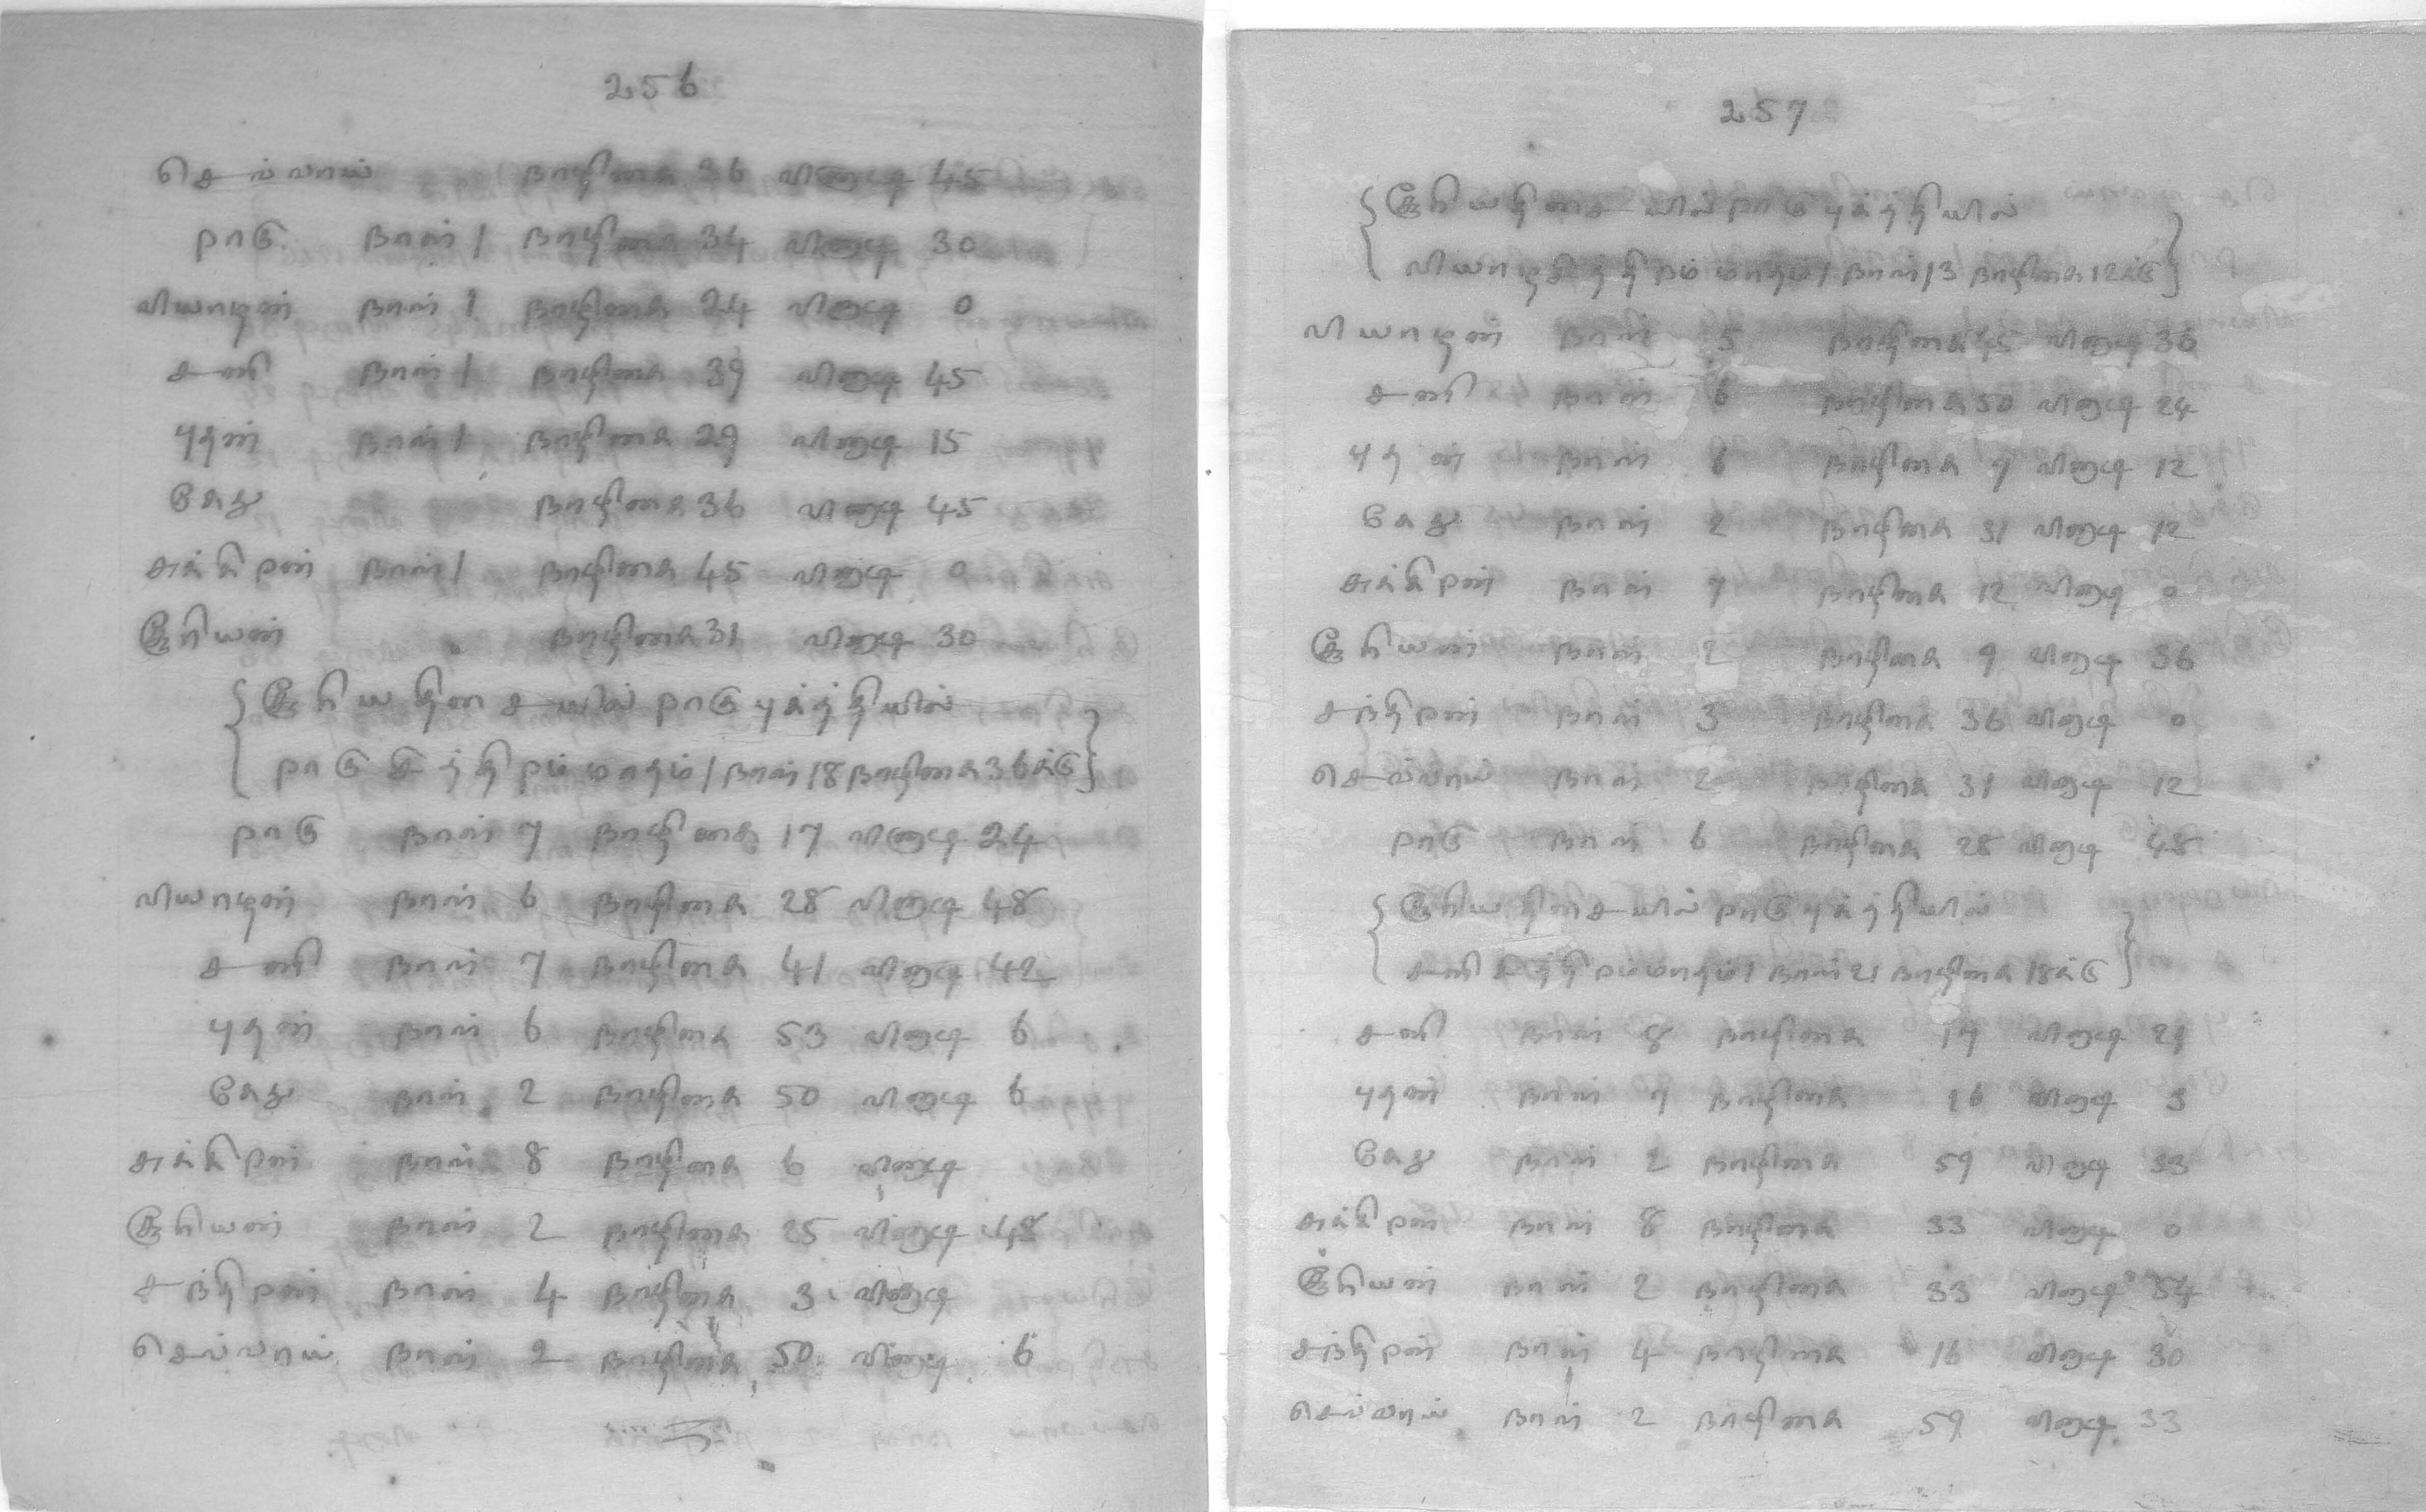 256
செவ்வாய் நாழிகை 36 வினாடி 45
ராகு நாள் 1 நாழிகை 34 வினாடி 30
வியாழன் நாள் 1 நாழிகை 24 வினாடி 0
சனி நாள் 1 நாழிகை 39 வினாடி 45
புதன் நாள் 1 நாழிகை 29 வினாடி 15
கேது நாழிகை 36 வினாடி 45
சுக்கிரன் நாள் 1 நாழிகை 45 வினாடி 0
சூரியன் நாழிகை 31 வினாடி 30
{ சூரியதிசையில் ராகு புக்தியில்
ராகு சித்திரம் மாதம் 1 நாள் 18 நாழிகை 36க்கு }
ராகு நாள் 7 நாழிகை 17 வினாடி 24
வியாழன் நாள் 6 நாழிகை 28 வினாடி 48
சனி நாள் 7 நாழிகை 41 வினாடி 42
புதன் நாள் 6 நாழிகை 53 வினாடி 6
கேது நாள் 2 நாழிகை 50 வினாடி 6
சுக்கிரன் நாள் 8 நாழிகை 6 வினாடி
சூரியன் நாள் 2 நாழிகை 25 வினாடி 48
சந்திரன் நாள் 4 நாழிகை 3 வினாடி
செவ்வாய் நாள் 2 நாழிகை 50 வினாடி 6
257
{ சூரியதிசையில் ராகு புக்தியில்
வியாழசித்திரம் மாதம் 1 நாள் 13 நாழிகை 12க்கு }
வியாழன் நாள் 5 நாழிகை 45 வினாடி 36
சனி நாள் 6 நாழிகை 50 வினாடி 24
புதன் நாள் 6 நாழிகை 7 வினாடி 12
கேது நாள் 2 நாழிகை 31 வினாடி 12
சுக்கிரன் நாள் 7 நாழிகை 12 வினாடி 0
சூரியன் நாள் 2 நாழிகை 9 வினாடி 36
சந்திரன் நாள் 3 நாழிகை 36 வினாடி 0
செவ்வாய் நாள் 2 நாழிகை 31 வினாடி 12
ராகு நாள் 6 நாழிகை 28 வினாடி 48
{ சூரியதிசையில் ராகு புக்தியில்
சனிசித்திரம் மாதம் 1 நாள் 21 நாழிகை 18க்கு }
சனி நாள் 8 நாழிகை வினாடி
புதன் நாள் 7 நாழிகை 16 வினாடி 3
கேது நாள் 2 நாழிகை 59 வினாடி 33
சுக்கிரன் நாள் 8 நாழிகை 33 வினாடி 0
சூரியன் நாள் 2 நாழிகை 33 வினாடி 54
சந்திரன் நாள் 4 நாழிகை 16 வினாடி 30
செவ்வாய் நாள் 2 நாழிகை 59 வினாடி 33